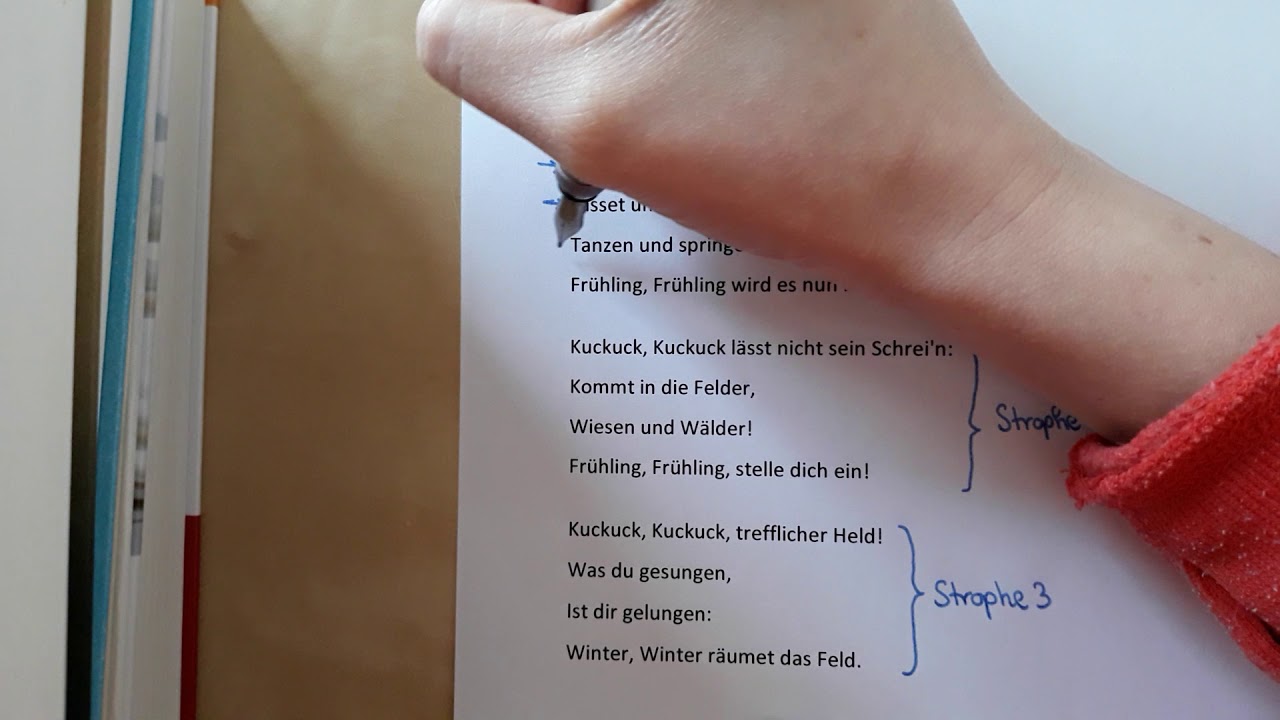 Tanzen und
Frühling, Frühling wird es nun
Kuckuck, Kuckuck lässt nicht sein Schrei'n:
Kommt in die Felder,
Wiesen und Wälder!
Frühling, Frühling, stelle dich ein!
Strophe
Kuckuck, Kuckuck, trefflicher Held!
Was du gesungen,
Ist dir gelungen:
Winter, Winter räumet das Feld.
Strophe 3